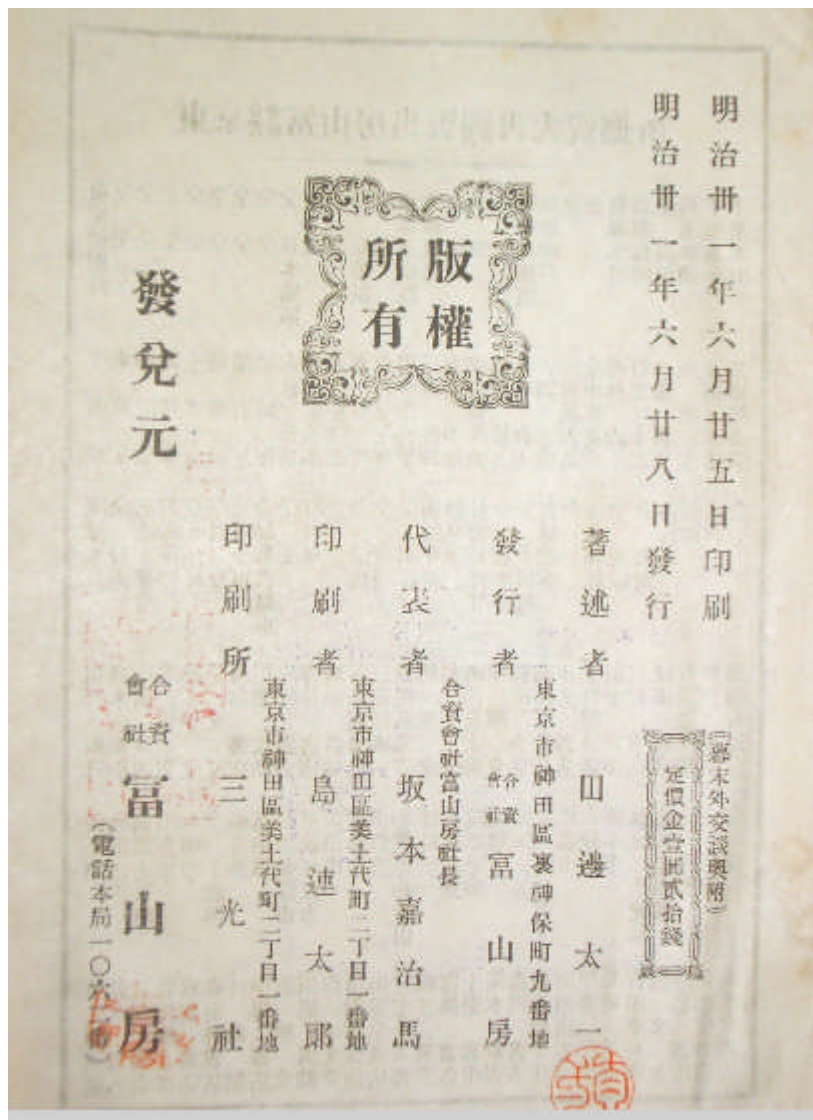 明治卅一年六月廿五日印刷
明治卅一年六月廿八日發行
(幕末外交談奥附)
定價金壹圓貳拾錢
版權
所有
著述者 田邊太一
東京市神田區裏神保町九番地
發行者 合資會社 冨山房
合資會社富山房社長
代表者 坂本嘉治馬
東京市神田區美土代町二丁目一番地
印刷者 島連太郎
東京市神田區美土代町二丁目一番地
印刷所 三光社
發兌元 合資會社 冨山房
(電話本局一〇六